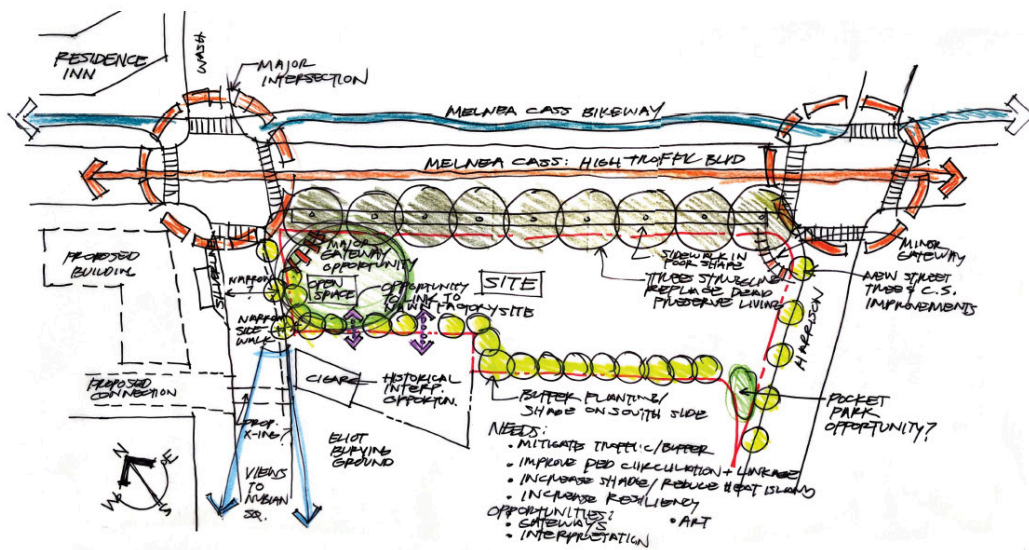 RESIDENCE
INN
WASH
MAJOR
INTERSECTION
MELNEA CASS BIKEWAY
MELNEA CASS: HIGH TRAFFIC BLVD
PROPOSED
BUILDING
SILVERLINE
NARROW
MAJOR
GATEWAY
OPPORTUNITY
OPEN
SPACE
OPPORTUNITY
TO LINK TO
SITE
SITE
SIDEWALK IN
POOR SHAPE
TREES STRUGGLING
REPLACE DEAD
PRESERVE LIVING
MINOR
GATEWAY
NEW STREET
TREES & C.S.
IMPROVEMENTS
HARRISON
NARROW
SIDE-
WALK
PROPOSED
CONNECTION
CIGAR
HISTORICAL
INTERP.
OPPORTUN.
BUFFER PLANTING/
SHADE ON SOUTH SIDE
POCKET
PARK
OPPORTUNITY?
PROP.
X-ING?
ELIOT
BURYING
GROUND
VIEWS
TO
NUBIAN
SQ.
N
E
W
S
NEEDS:
• MITIGATE TRAFFIC/BUFFER
• IMPROVE PED CIRCULATION + LINKAGE
• INCREASE SHADE/REDUCE HEAT ISLAND
• INCREASE RESILIENCY
OPPORTUNITIES:
• GATEWAYS
• INTERPRETATION
• ART